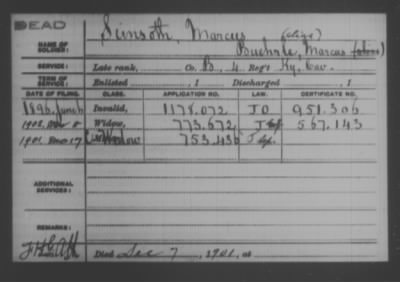 DEAD
NAME OF SOLDIER: Seinsoth, Marcus (alias)
Buehrle, Marcus (alias)
SERVICE: Late rank, Co. B, 4 Reg't Ky. Cav.
TERM OF SERVICE: Enlisted , 1 Discharged , 1
DATE OF FILING. CLASS. APPLICATION NO. LAW. CERTIFICATE NO.
1896, June Invalid, 1178.072 951.306
1902, Widow, 773.672 567.143
1901, Dec 17 Widow 753.436
ADDITIONAL SERVICES:
REMARKS:
Died Dec 7, 1901, at